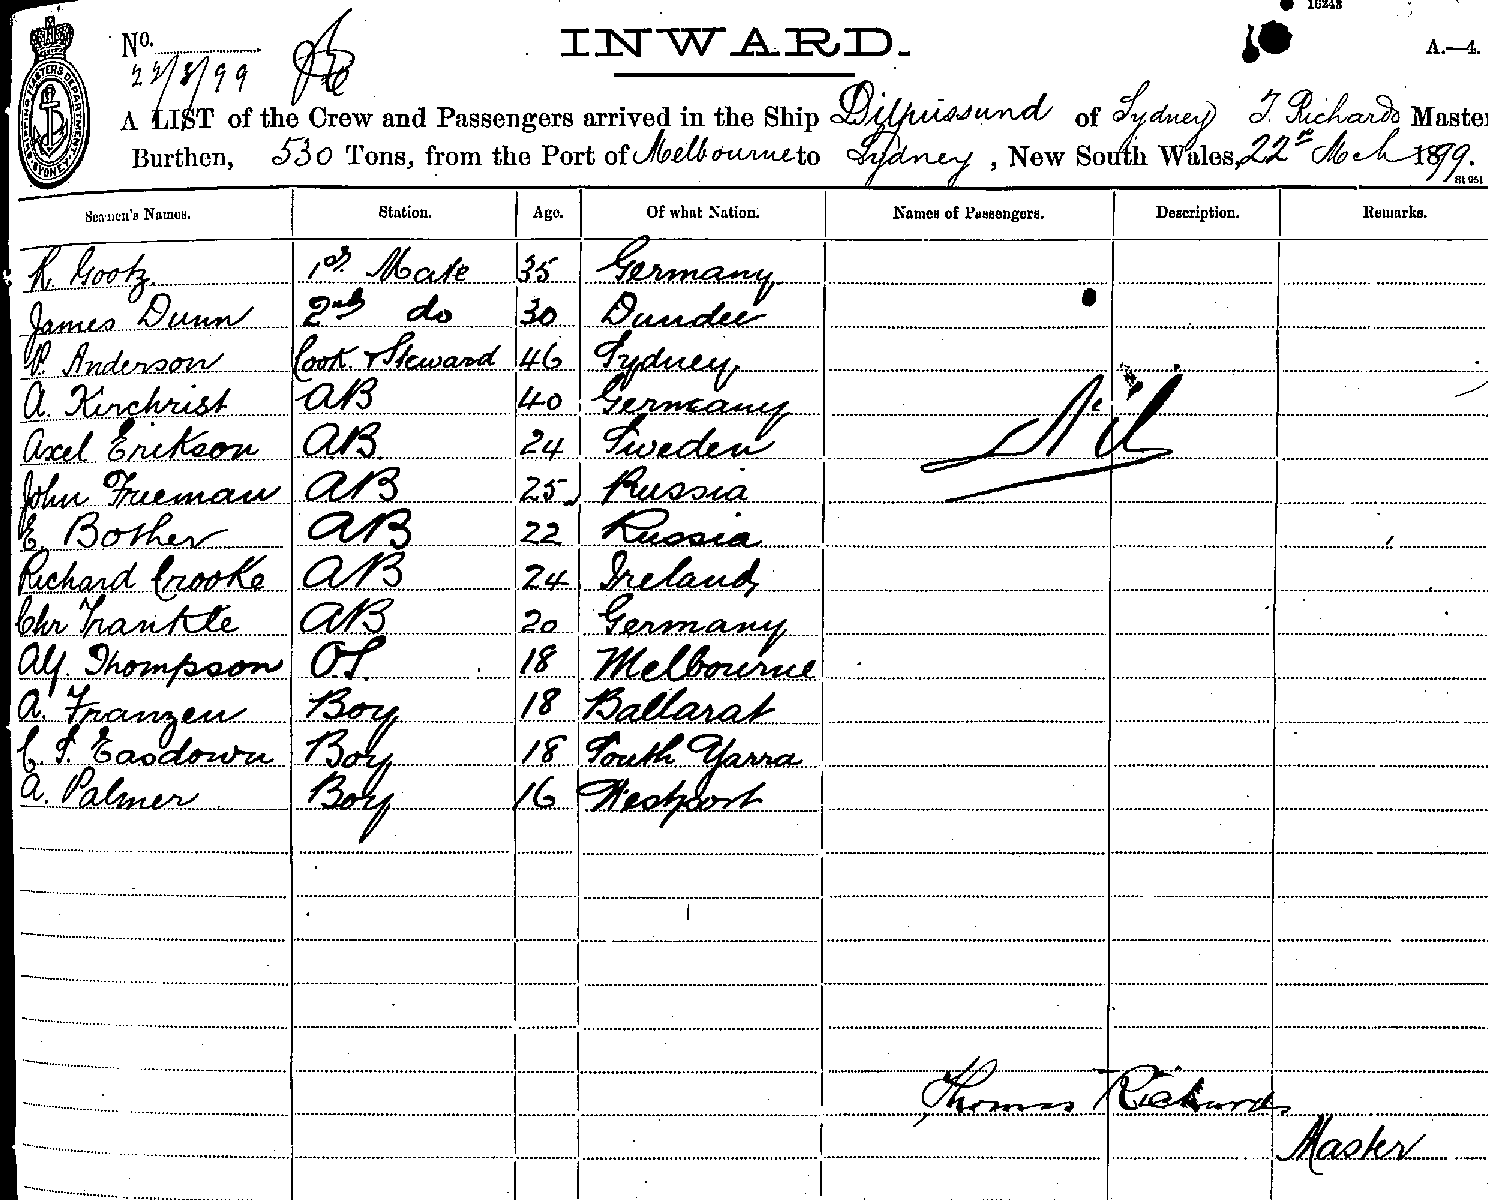 16248
No.
22/3/99
INWARD.
A.—4.
A LIST of the Crew and Passengers arrived in the Ship Dilpussund of Sydney T. Richards Master
Burthen, 530 Tons, from the Port of Melbourne to Sydney, New South Wales, 22nd Mch 1899.
Seamen's Names. Station. Age. Of what Nation. Names of Passengers. Description. Remarks.
R. Gootz 1st Mate 35 Germany
James Dunn 2nd do 30 Dundee
P. Anderson Cook & Steward 46 Sydney
A. Kirchrist AB 40 Germany
Axel Erikson AB 24 Sweden
Nil
John Freeman AB 25 Russia
E. Bother AB 22 Russia
Richard Crooke AB 24 Ireland
Chr Frankle AB 20 Germany
Alf Thompson O.S. 18 Melbourne
A. Franzen Boy 18 Ballarat
C. S. Easdown Boy 18 South Yarra
A. Palmer Boy 16 Westport
Thomas Richards
Master